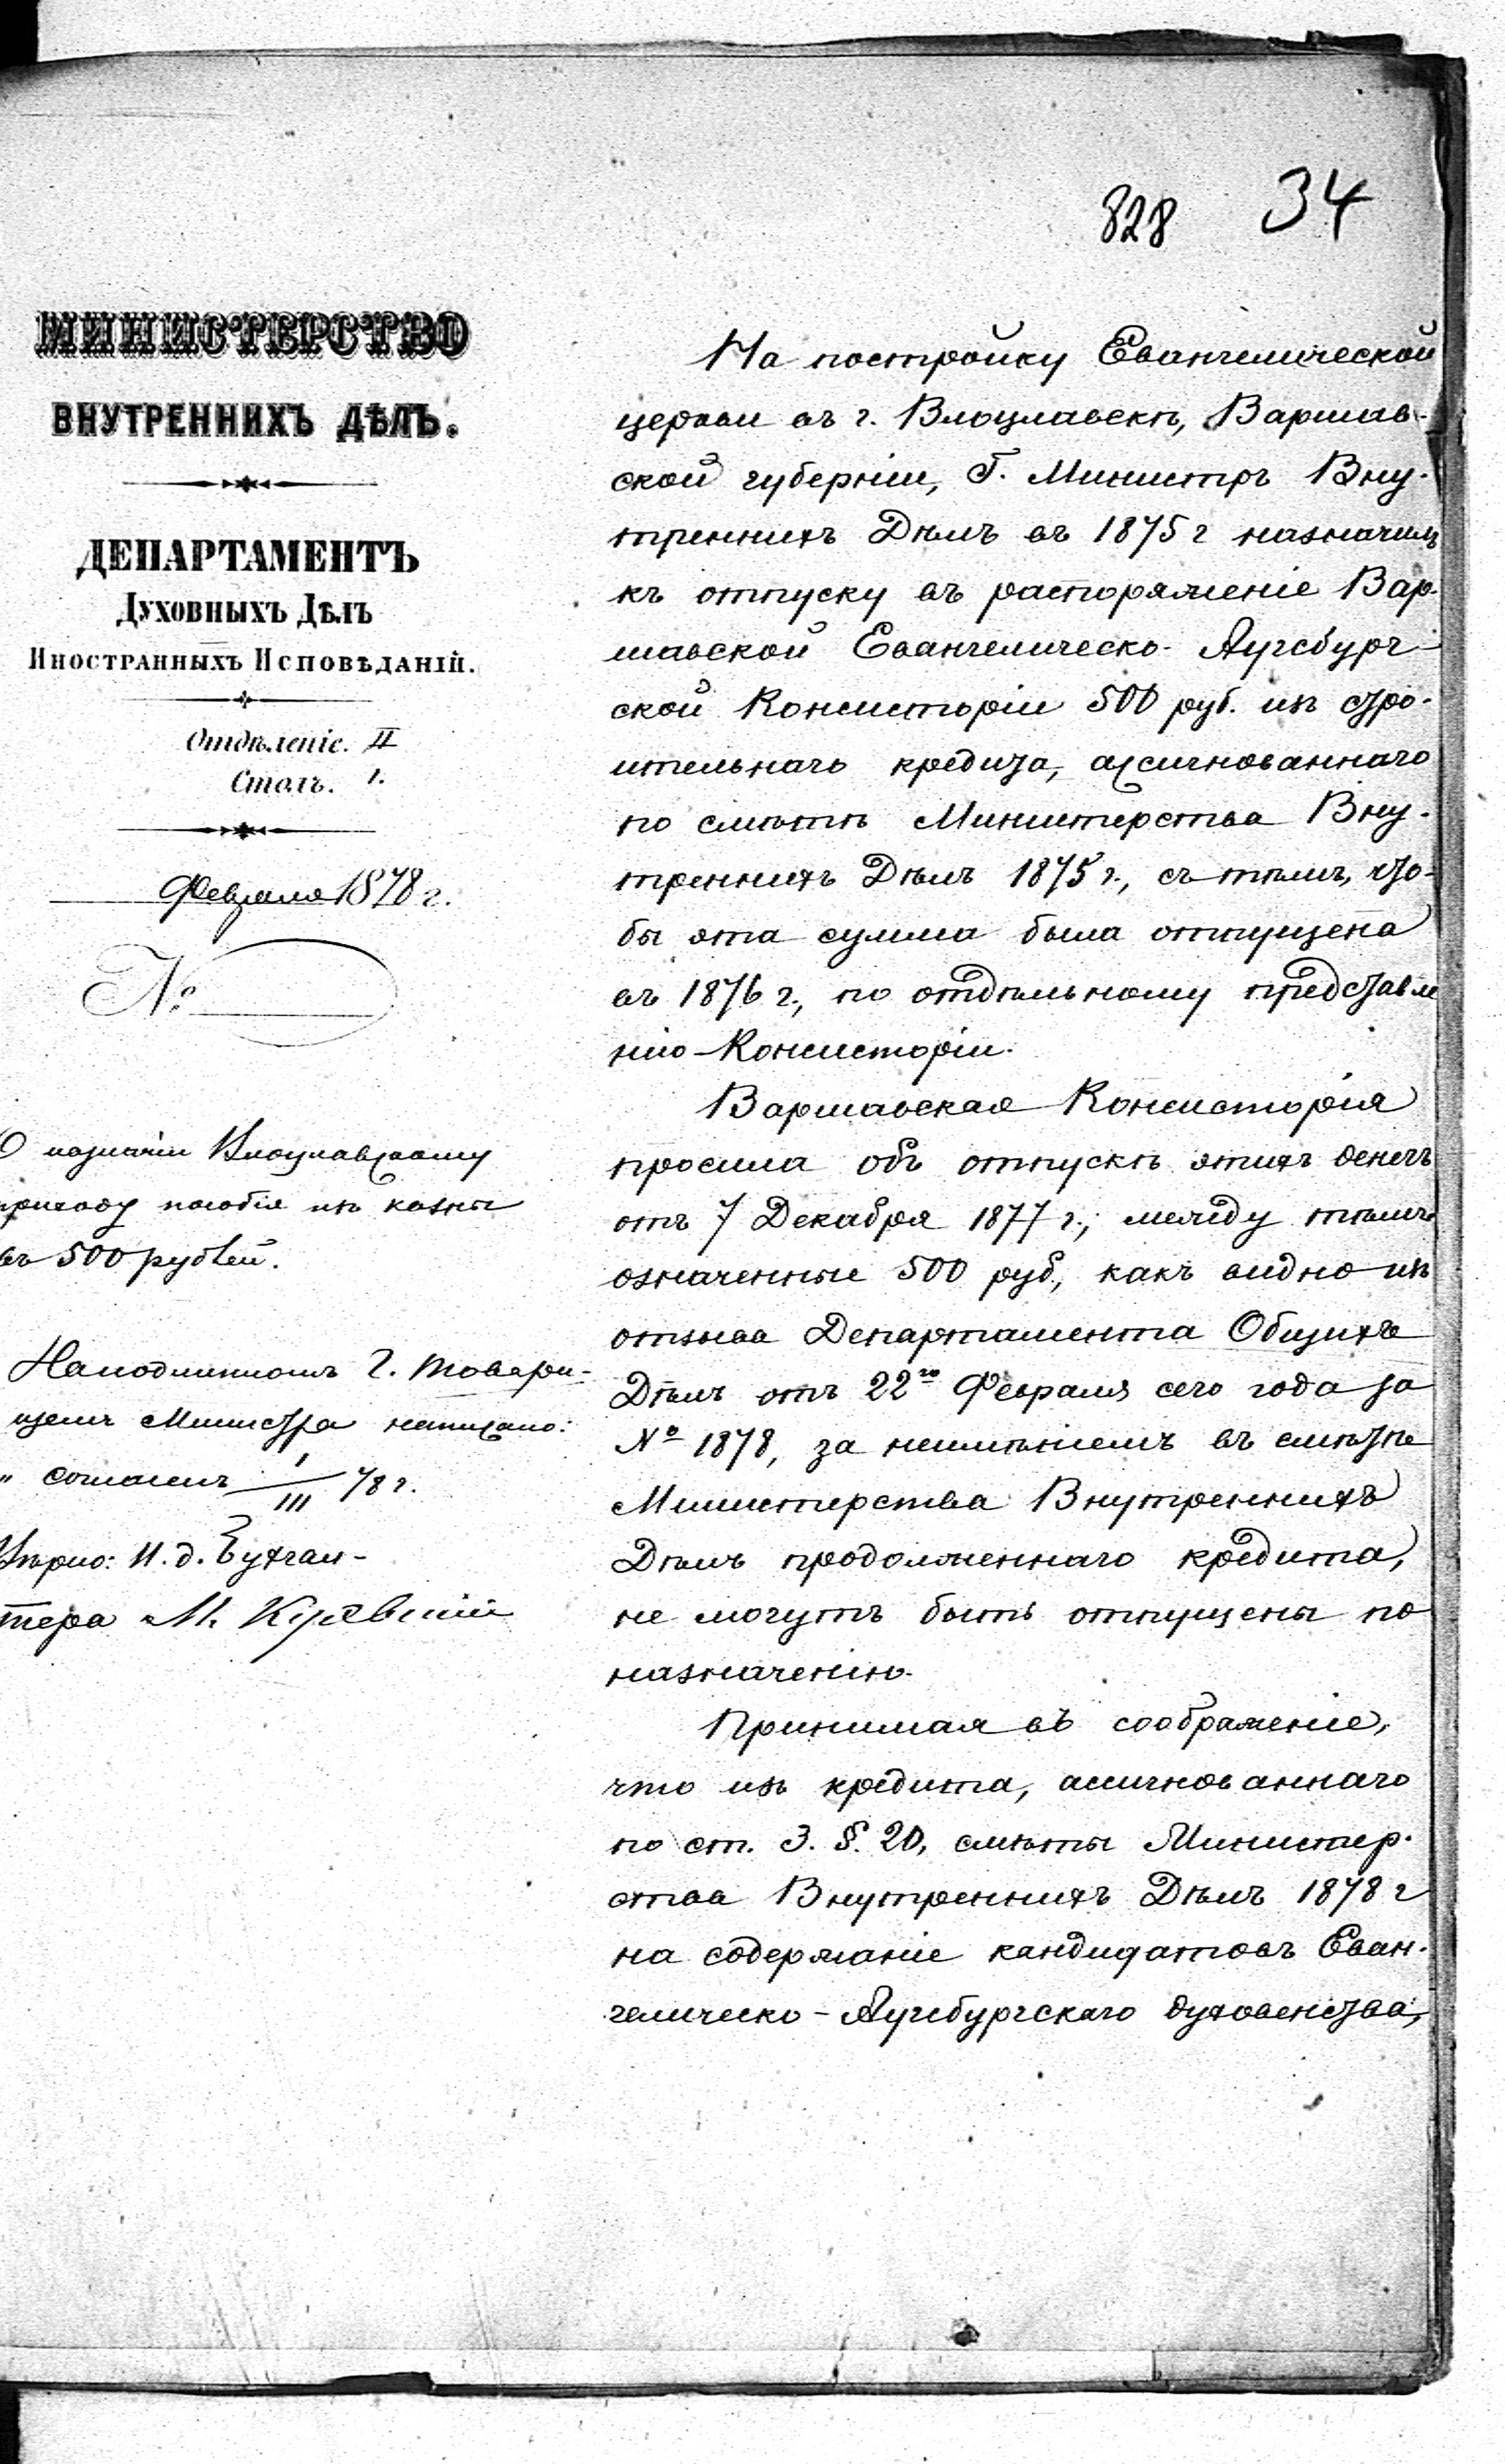 828 34
МИНИСТЕРСТВО
ВНУТРЕННИХЪ ДѢЛЪ.
ДЕПАРТАМЕНТЪ
ДУХОВНЫХЪ ДѢЛЪ
ИНОСТРАННЫХЪ ИСПОВѢДАНІЙ.
Отдѣленіе. II
Столъ. 1.
Февраля 1878 г.
№
О назначіи Влоцлавскому
приходу пособія изъ казны
въ 500 рублей.
На подлинномъ Г. Товари-
щемъ Министра написано:
" согласенъ I/III 78 г.
Вѣрно: И. д. Бухгал-
тера М.
На постройку Евангелической
церкви въ г. Влоцлавскѣ, Варшав-
ской губерніи, Г. Министръ Вну-
треннихъ Дѣлъ въ 1875 г назначилъ
къ отпуску въ распоряженіе Вар-
шавской Евангелическо-Аугсбург-
ской Консисторіи 500 руб. изъ стро-
ительнаго кредита, ассигнованнаго
по смѣтѣ Министерства Вну-
треннихъ Дѣлъ 1875 г., съ тѣмъ, что-
бы эта сумма была отпущена
въ 1876 г., по отдѣльному представле
нію Консисторіи.
Варшавская Консисторія
просила объ отпускѣ этихъ денегъ
отъ 7 Декабря 1877 г.; между тѣмъ
означенные 500 руб., какъ видно изъ
отзыва Департамента Общихъ
Дѣлъ отъ 22го Февраля сего года за
№ 1878, за неимѣніемъ въ смѣтѣ
Министерства Внутреннихъ
Дѣлъ продолженнаго кредита,
не могутъ быть отпущены по
назначенію.
Принимая въ соображеніе,
что изъ кредита, ассигнованнаго
по ст. 3. §. 20, смѣты Министер-
ства Внутреннихъ Дѣлъ 1878 г
на содержаніе кандидатовъ Еван-
гелическо-Аугсбургскаго духовенства,